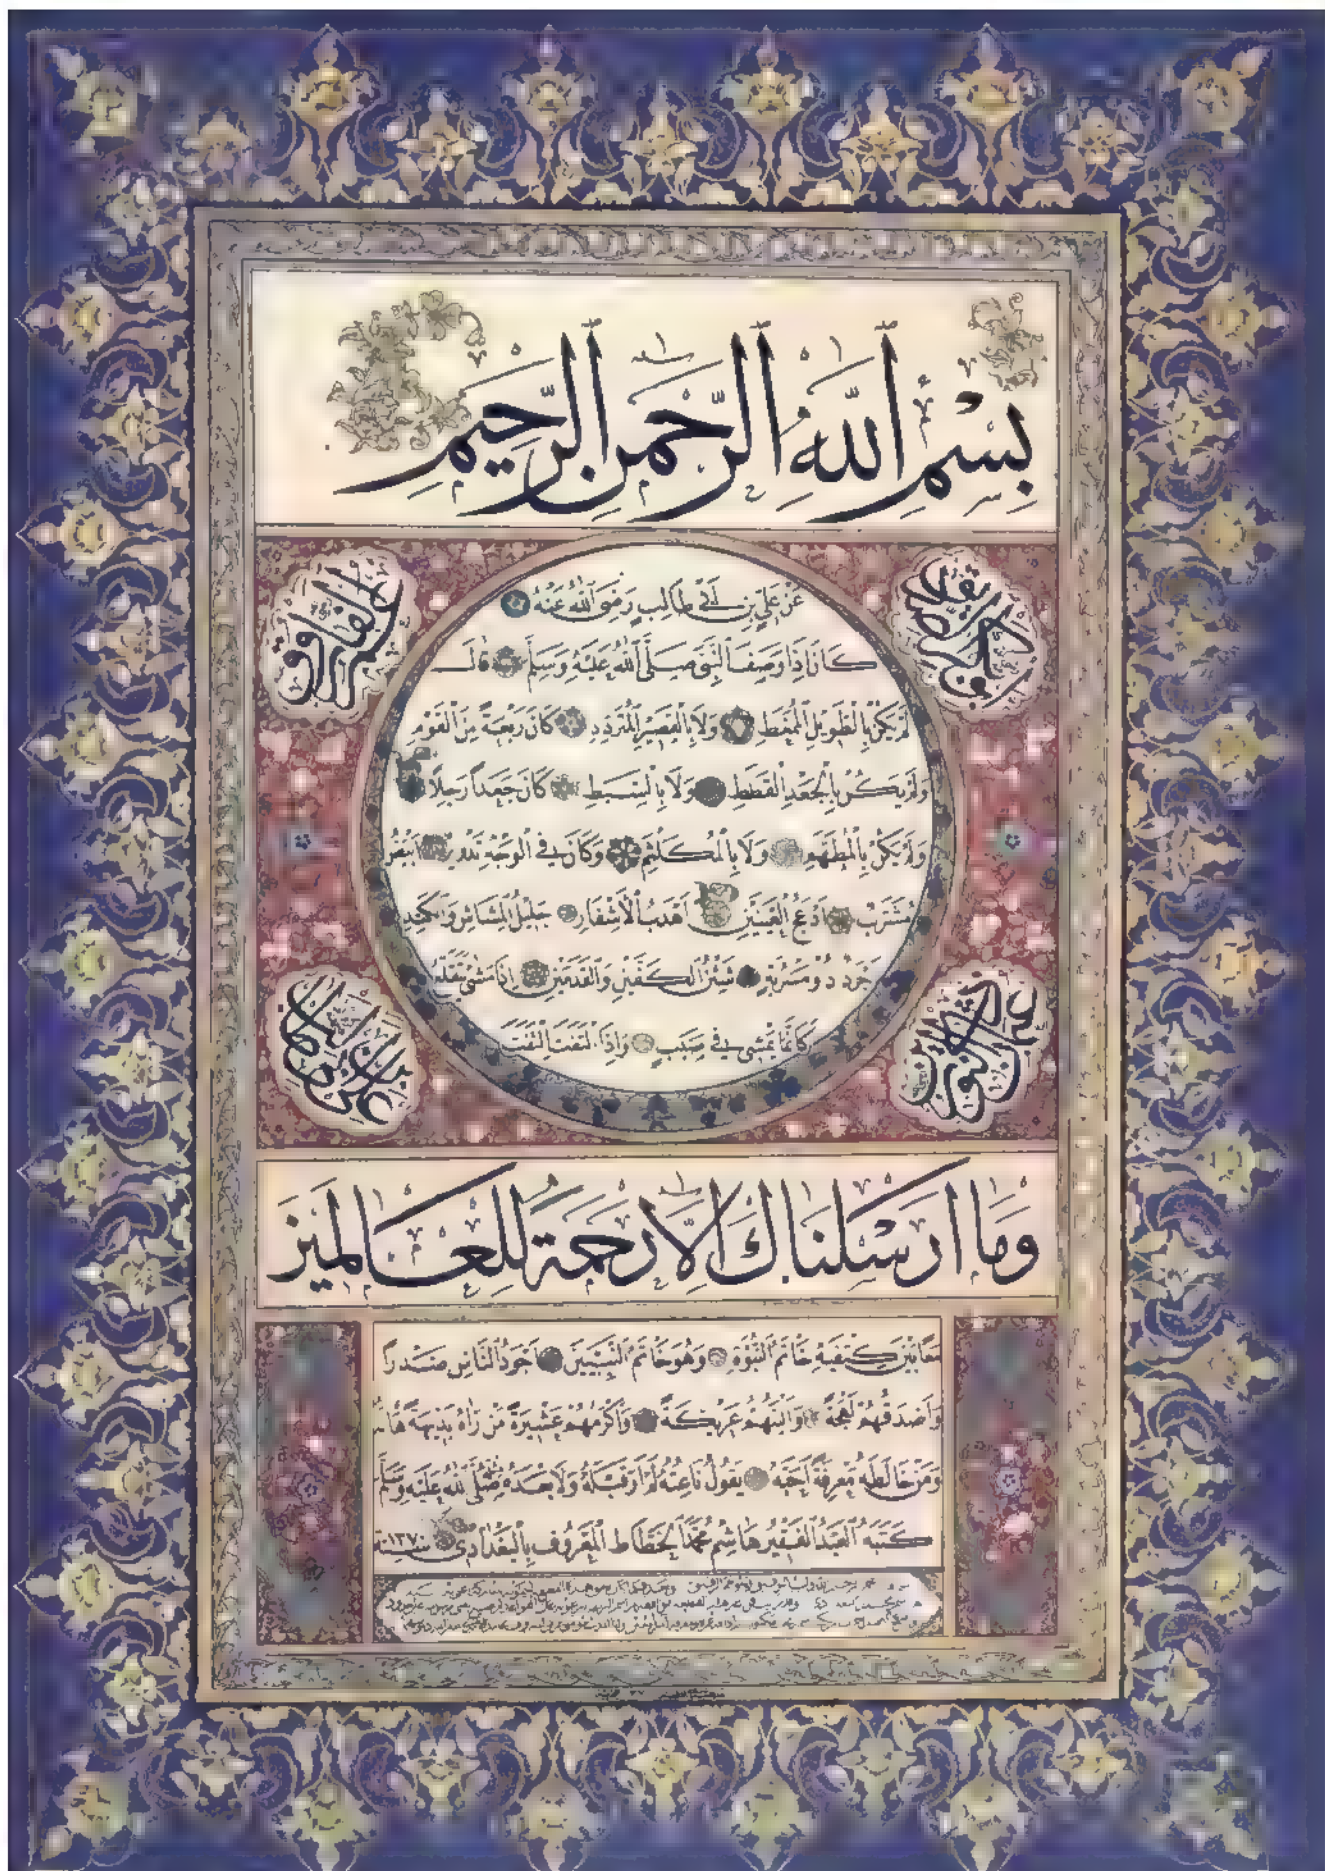 بِسْمِ ٱللَّهِ ٱلرَّحْمٰنِ ٱلرَّحِيمِ
ابو بكر الصديق
عمر الفاروق
عَنْ عَلِيِّ بْنِ أَبِي طَالِبٍ رَضِيَ ٱللّٰهُ عَنْهُ
كَانَ إِذَا وَصَفَ ٱلنَّبِيَّ صَلَّى ٱللّٰهُ عَلَيْهِ وَسَلَّمَ قَالَ
لَمْ يَكُنْ بِالطَّوِيلِ ٱلْمُمَّغِطِ وَلَا بِالْقَصِيرِ ٱلْمُتَرَدِّدِ كَانَ رَبْعَةً مِنَ ٱلْقَوْمِ
وَلَمْ يَكُنْ بِالْجَعْدِ ٱلْقَطَطِ وَلَا بِالسَّبْطِ كَانَ جَعْدًا رَجِلًا
وَلَمْ يَكُنْ بِالْمُطَهَّمِ وَلَا بِالْمُكَلْثَمِ وَكَانَ فِي الْوَجْهِ تَدْوِيرٌ أَبْيَضُ
مُشْرَبٌ أَدْعَجُ الْعَيْنَيْنِ أَهْدَبُ الْأَشْفَارِ جَلِيلُ الْمُشَاشِ وَالْكَتَدِ
أَجْرَدُ ذُو مَسْرُبَةٍ شَثْنُ الْكَفَّيْنِ وَالْقَدَمَيْنِ إِذَا مَشَى تَقَلَّعَ
كَأَنَّمَا يَمْشِي فِي صَبَبٍ وَإِذَا ٱلْتَفَتَ ٱلْتَفَتَ
وَمَا أَرْسَلْنَاكَ إِلَّا رَحْمَةً لِلْعَالَمِينَ
مَعًا بَيْنَ كَتِفَيْهِ خَاتَمُ النُّبُوَّةِ وَهُوَ خَاتَمُ النَّبِيِّينَ أَجْوَدُ النَّاسِ صَدْرًا
وَأَصْدَقُهُمْ لَهْجَةً وَأَلْيَنُهُمْ عَرِيكَةً وَأَكْرَمُهُمْ عَشِيرَةً مَنْ رَآهُ بَدِيهَةً هَابَهُ
وَمَنْ خَالَطَهُ مَعْرِفَةً أَحَبَّهُ يَقُولُ نَاعِتُهُ لَمْ أَرَ قَبْلَهُ وَلَا بَعْدَهُ مِثْلَهُ صَلَّى ٱللّٰهُ عَلَيْهِ وَسَلَّمَ
كَتَبَهُ ٱلْعَبْدُ ٱلْفَقِيرُ هَاشِمُ مُحَمَّدٌ ٱلْخَطَّاطُ ٱلْمَعْرُوفُ بِالْبَغْدَادِيِّ سَنَةَ ١٣٧٠